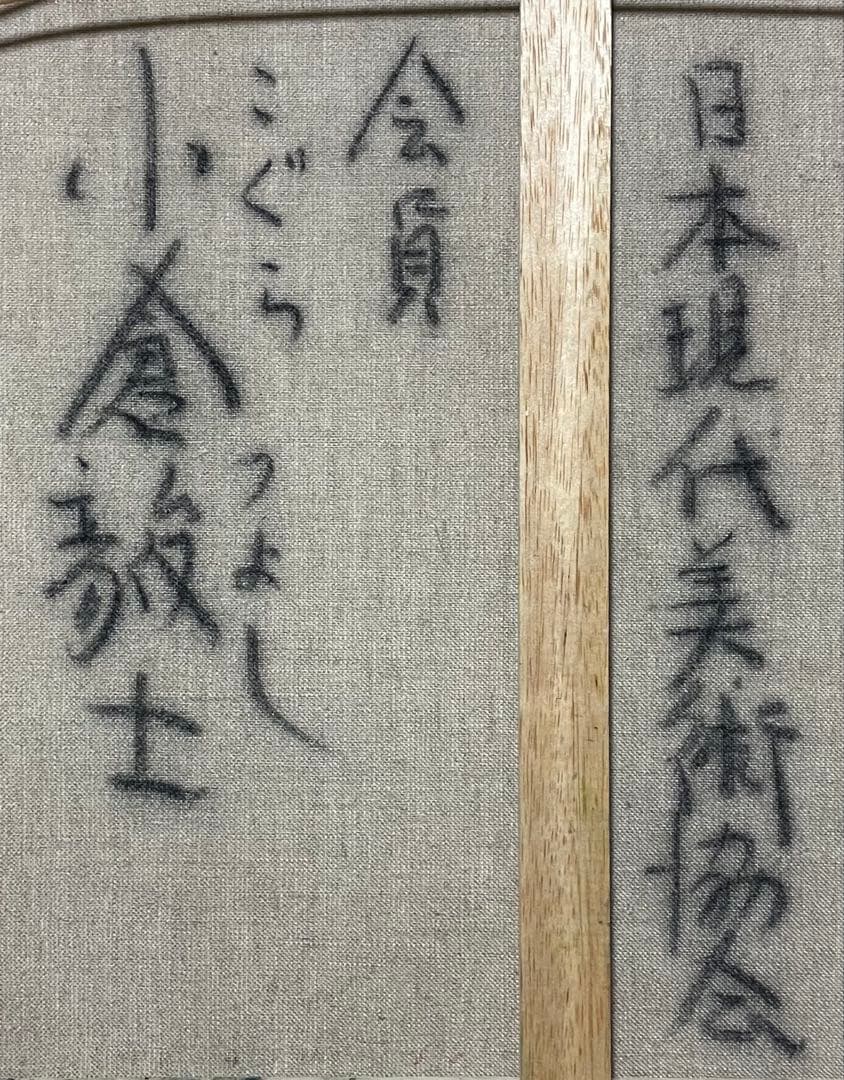 日本現代美術協会
会員
こぐら つよし
小倉毅士